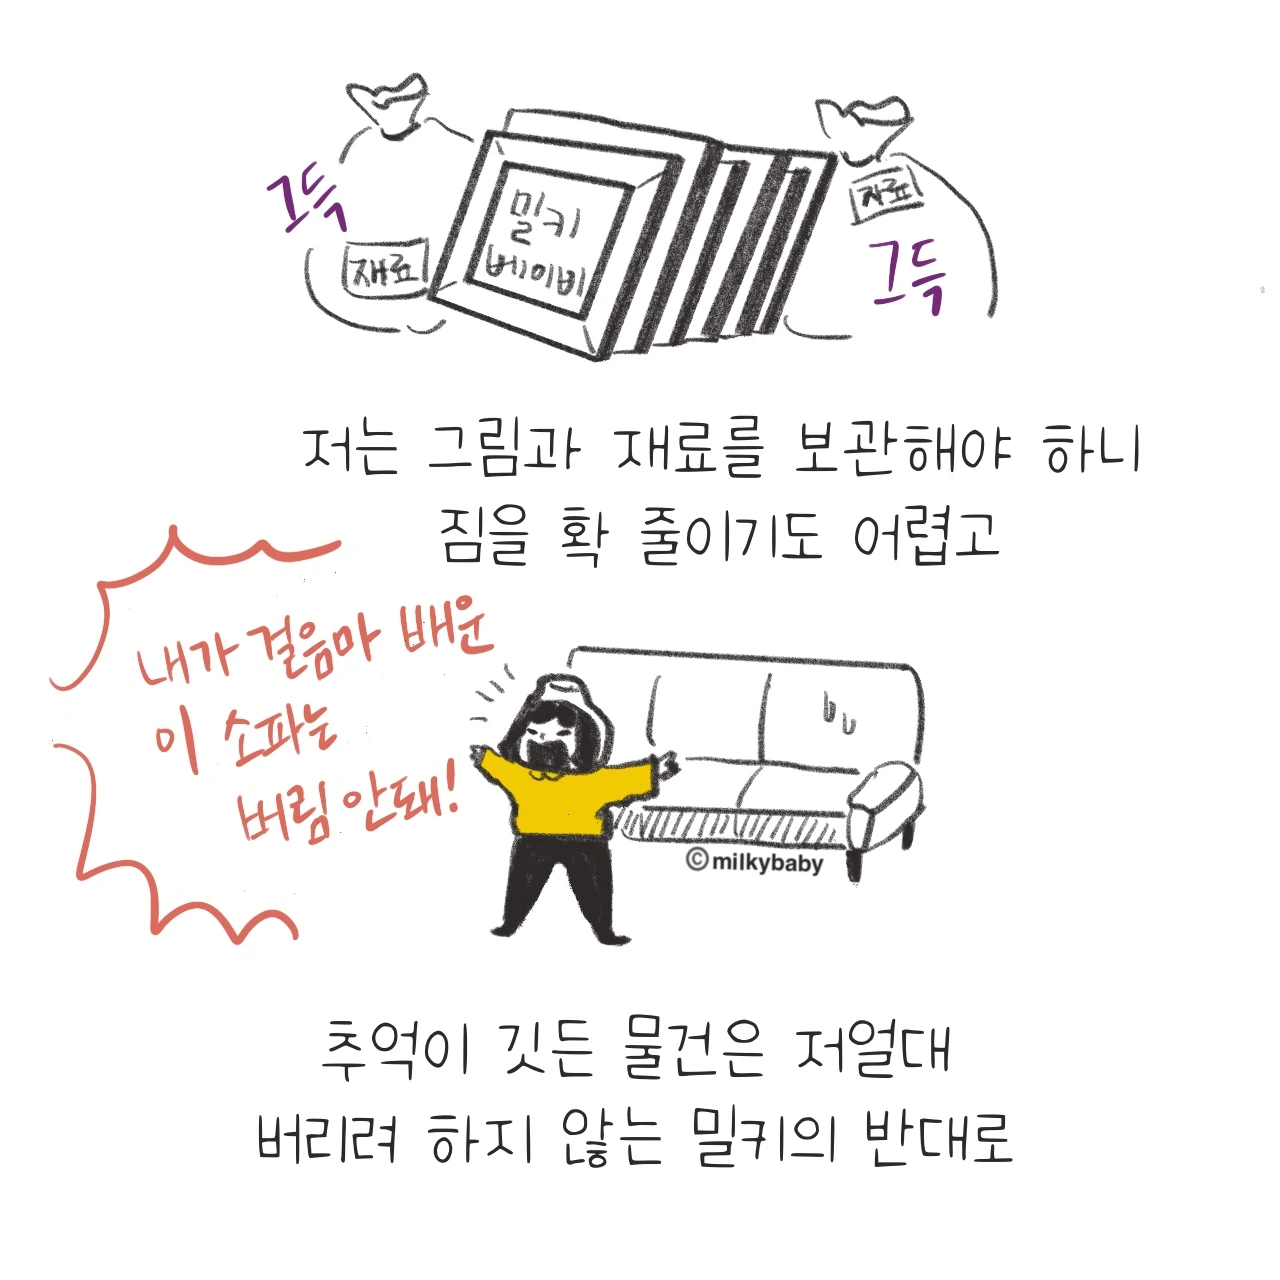 그득
재료
밀키
베이비
재료
그득
저는 그림과 재료를 보관해야 하니
짐을 확 줄이기도 어렵고
내가 걸음마 배운
이 소파는
버림 안돼!
©milkybaby
추억이 깃든 물건은 저얼대
버리려 하지 않는 밀키의 반대로